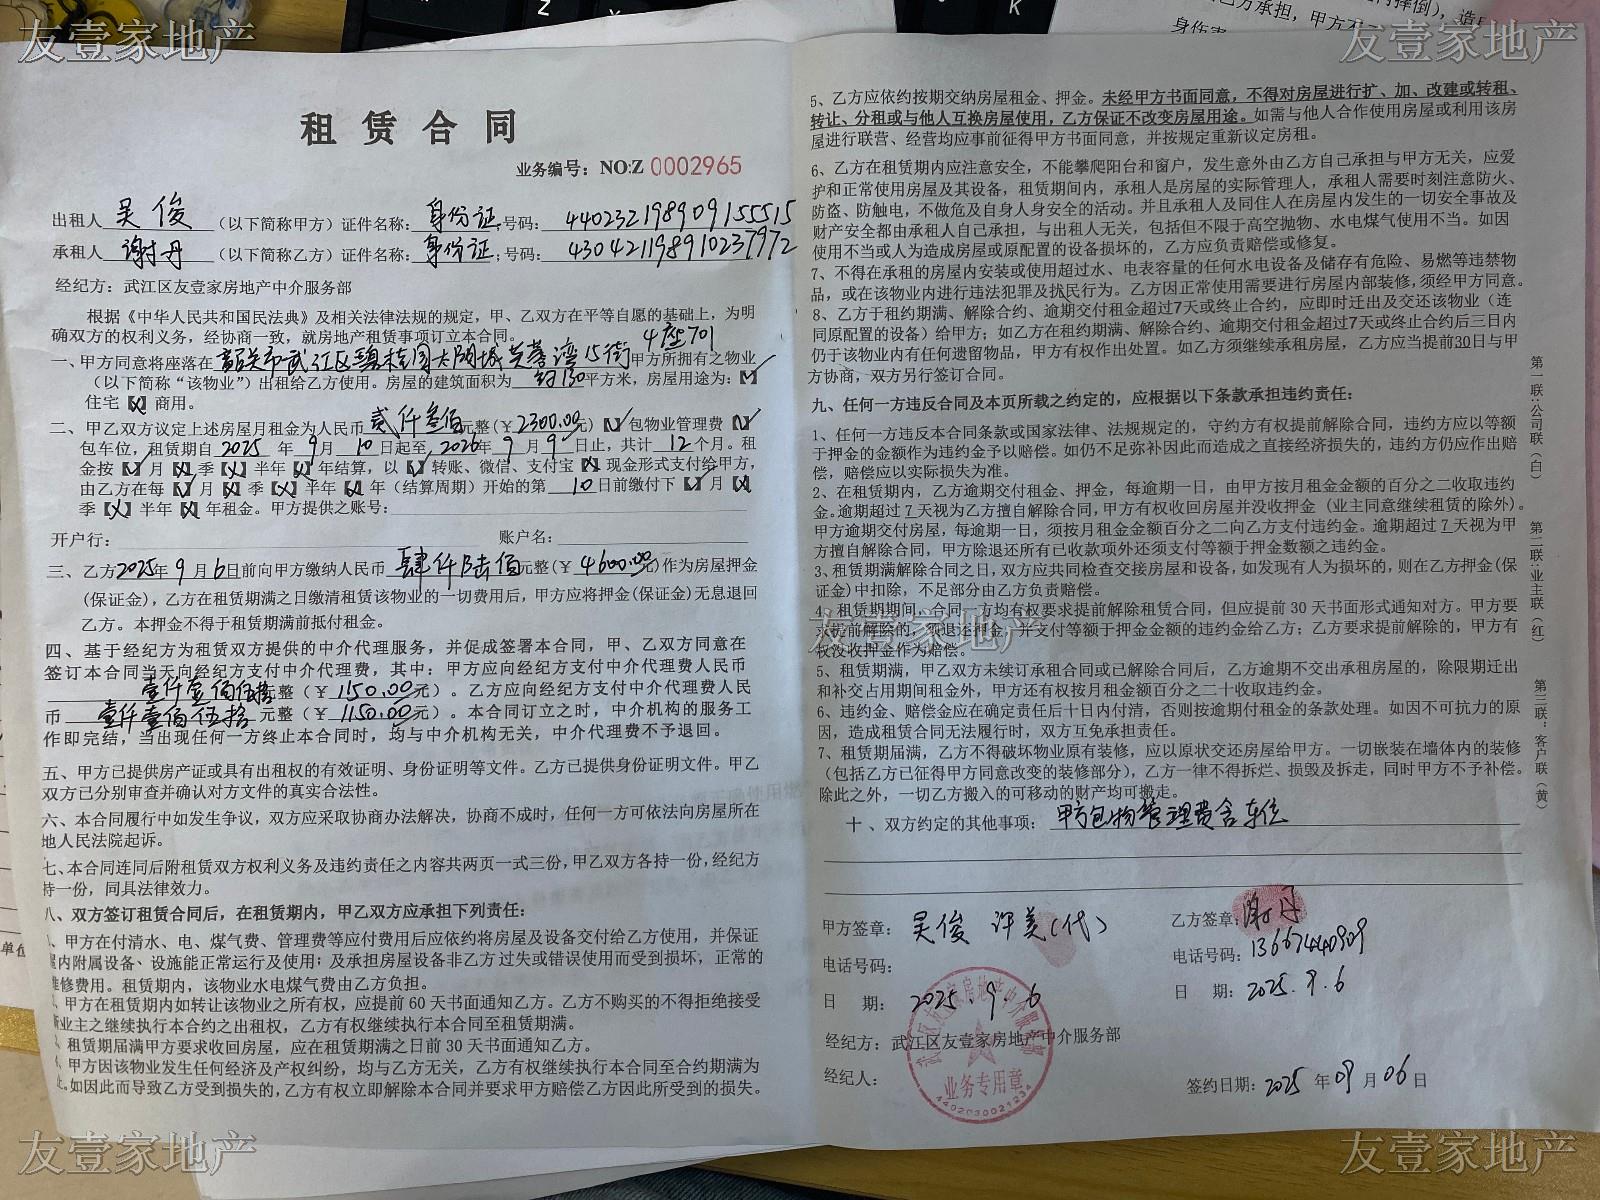 友壹家地产
友壹家地产
乙方承担，甲方不
身伤害
租赁合同
业务编号：NO:Z 0002965
出租人 吴俊 （以下简称甲方）证件名称：身份证；号码：440232198909155515
承租人 谢丹 （以下简称乙方）证件名称：身份证；号码：430421198910237972
经纪方：武江区友壹家房地产中介服务部
根据《中华人民共和国民法典》及相关法律法规的规定，甲、乙双方在平等自愿的基础上，为明
确双方的权利义务，经协商一致，就房地产租赁事项订立本合同。
4座701
一、甲方同意将座落在 韶关市武江区碧桂园太阳城芙蓉湾15街 甲方所拥有之物业
（以下简称“该物业”）出租给乙方使用。房屋的建筑面积为 约130 平方米，房屋用途为：【✓】
住宅【×】商用。
二、甲乙双方议定上述房屋月租金为人民币 贰仟叁佰 元整（¥2300.00元）【✓】包物业管理费【✓】
包车位，租赁期自 2025 年 9 月 10 日起至 2026 年 9 月 9 日止，共计 12 个月。租
金按【✓】月【×】季【×】半年【×】年结算，以【✓】转账、微信、支付宝【×】现金形式支付给甲方，
由乙方在每【✓】月【×】季【×】半年【×】年（结算周期）开始的第 10 日前缴付下【✓】月【×】
季【×】半年【×】年租金。甲方提供之账号：
开户行： 账户名：
三、乙方 2025 年 9 月 6 日前向甲方缴纳人民币 肆仟陆佰 元整（¥4600.00元）作为房屋押金
(保证金)，乙方在租赁期满之日缴清租赁该物业的一切费用后，甲方应将押金(保证金)无息退回
乙方。本押金不得于租赁期满前抵付租金。
四、基于经纪方为租赁双方提供的中介代理服务，并促成签署本合同，甲、乙双方同意在
签订本合同当天向经纪方支付中介代理费，其中：甲方应向经纪方支付中介代理费人民币
壹仟壹佰伍拾 元整（¥1150.00元）。乙方应向经纪方支付中介代理费人民
币 壹仟壹佰伍拾 元整（¥1150.00元）。本合同订立之时，中介机构的服务工
作即完结，当出现任何一方终止本合同时，均与中介机构无关，中介代理费不予退回。
五、甲方已提供房产证或具有出租权的有效证明、身份证明等文件。乙方已提供身份证明文件。甲乙
双方已分别审查并确认对方文件的真实合法性。
六、本合同履行中如发生争议，双方应采取协商办法解决，协商不成时，任何一方可依法向房屋所在
地人民法院起诉。
七、本合同连同后附租赁双方权利义务及违约责任之内容共两页一式三份，甲乙双方各持一份，经纪方
持一份，同具法律效力。
八、双方签订租赁合同后，在租赁期内，甲乙双方应承担下列责任：
、甲方在付清水、电、煤气费、管理费等应付费用后应依约将房屋及设备交付给乙方使用，并保证
屋内附属设备、设施能正常运行及使用；及承担房屋设备非乙方过失或错误使用而受到损坏，正常的
维修费用。租赁期内，该物业水电煤气费由乙方负担。
、甲方在租赁期内如转让该物业之所有权，应提前60天书面通知乙方。乙方不购买的不得拒绝接受
新业主之继续执行本合约之出租权，乙方有权继续执行本合同至租赁期满。
、租赁期届满甲方要求收回房屋，应在租赁期满之日前30天书面通知乙方。
4、甲方因该物业发生任何经济及产权纠纷，均与乙方无关，乙方有权继续执行本合同至合约期满为
止。如因此而导致乙方受到损失的，乙方有权立即解除本合同并要求甲方赔偿乙方因此所受到的损失。
5、乙方应依约按期交纳房屋租金、押金。未经甲方书面同意，不得对房屋进行扩、加、改建或转租、
转让、分租或与他人互换房屋使用，乙方保证不改变房屋用途。如需与他人合作使用房屋或利用该房
屋进行联营、经营均应事前征得甲方书面同意，并按规定重新议定房租。
6、乙方在租赁期内应注意安全，不能攀爬阳台和窗户，发生意外由乙方自己承担与甲方无关，应爱
护和正常使用房屋及其设备，租赁期间内，承租人是房屋的实际管理人，承租人需要时刻注意防火、
防盗、防触电，不做危及自身人身安全的活动。并且承租人及同住人在房屋内发生的一切安全事故及
财产安全都由承租人自己承担，与出租人无关，包括但不限于高空抛物、水电煤气使用不当。如因
使用不当或人为造成房屋或原配置的设备损坏的，乙方应负责赔偿或修复。
7、不得在承租的房屋内安装或使用超过水、电表容量的任何水电设备及储存有危险、易燃等违禁物
品，或在该物业内进行违法犯罪及扰民行为。乙方因正常使用需要进行房屋内部装修，须经甲方同意。
8、乙方于租约期满、解除合约、逾期交付租金超过7天或终止合约，应即时迁出及交还该物业（连
同原配置的设备）给甲方；如乙方在租约期满、解除合约、逾期交付租金超过7天或终止合约后三日内
仍于该物业内有任何遗留物品，甲方有权作出处置。如乙方须继续承租房屋，乙方应当提前30日与甲
方协商，双方另行签订合同。
九、任何一方违反合同及本页所载之约定的，应根据以下条款承担违约责任：
1、任何一方违反本合同条款或国家法律、法规规定的，守约方有权提前解除合同，违约方应以等额
于押金的金额作为违约金予以赔偿。如仍不足弥补因此而造成之直接经济损失的，违约方仍应作出赔
偿，赔偿应以实际损失为准。
2、在租赁期内，乙方逾期交付租金、押金，每逾期一日，由甲方按月租金金额的百分之二收取违约
金。逾期超过 7 天视为乙方擅自解除合同，甲方有权收回房屋并没收押金（业主同意继续租赁的除外）。
甲方逾期交付房屋，每逾期一日，须按月租金金额百分之二向乙方支付违约金。逾期超过 7 天视为甲
方擅自解除合同，甲方除退还所有已收款项外还须支付等额于押金数额之违约金。
3、租赁期满解除合同之日，双方应共同检查交接房屋和设备，如发现有人为损坏的，则在乙方押金(保
证金)中扣除，不足部分由乙方负责赔偿。
4、租赁期期间，合同一方均有权要求提前解除租赁合同，但应提前30天书面形式通知对方。甲方要
求提前解除的，须退还押金，并支付等额于押金金额的违约金给乙方；乙方要求提前解除的，甲方有
权没收押金作为赔偿。
友壹家地产
5、租赁期满，甲乙双方未续订承租合同或已解除合同后，乙方逾期不交出承租房屋的，除限期迁出
和补交占用期间租金外，甲方还有权按月租金额百分之二十收取违约金。
6、违约金、赔偿金应在确定责任后十日内付清，否则按逾期付租金的条款处理。如因不可抗力的原
因，造成租赁合同无法履行时，双方互免承担责任。
7、租赁期届满，乙方不得破坏物业原有装修，应以原状交还房屋给甲方。一切嵌装在墙体内的装修
（包括乙方已征得甲方同意改变的装修部分），乙方一律不得拆烂、损毁及拆走，同时甲方不予补偿。
除此之外，一切乙方搬入的可移动的财产均可搬走。
十、双方约定的其他事项：甲方包物管理费含车位
甲方签章：吴俊 许美（代）
电话号码：
日 期：2025.9.6
乙方签章：谢丹
电话号码：13667440909
日 期：2025.9.6
经纪方：武江区友壹家房地产中介服务部
经纪人：
签约日期：2025 年 09 月 06 日
武江区友壹家房地产中介服务部
业务专用章
4402030021234
第一联：公司联（白）
第二联：业主联（红）
第三联：客户联（黄）
单位
友壹家地产
友壹家地产